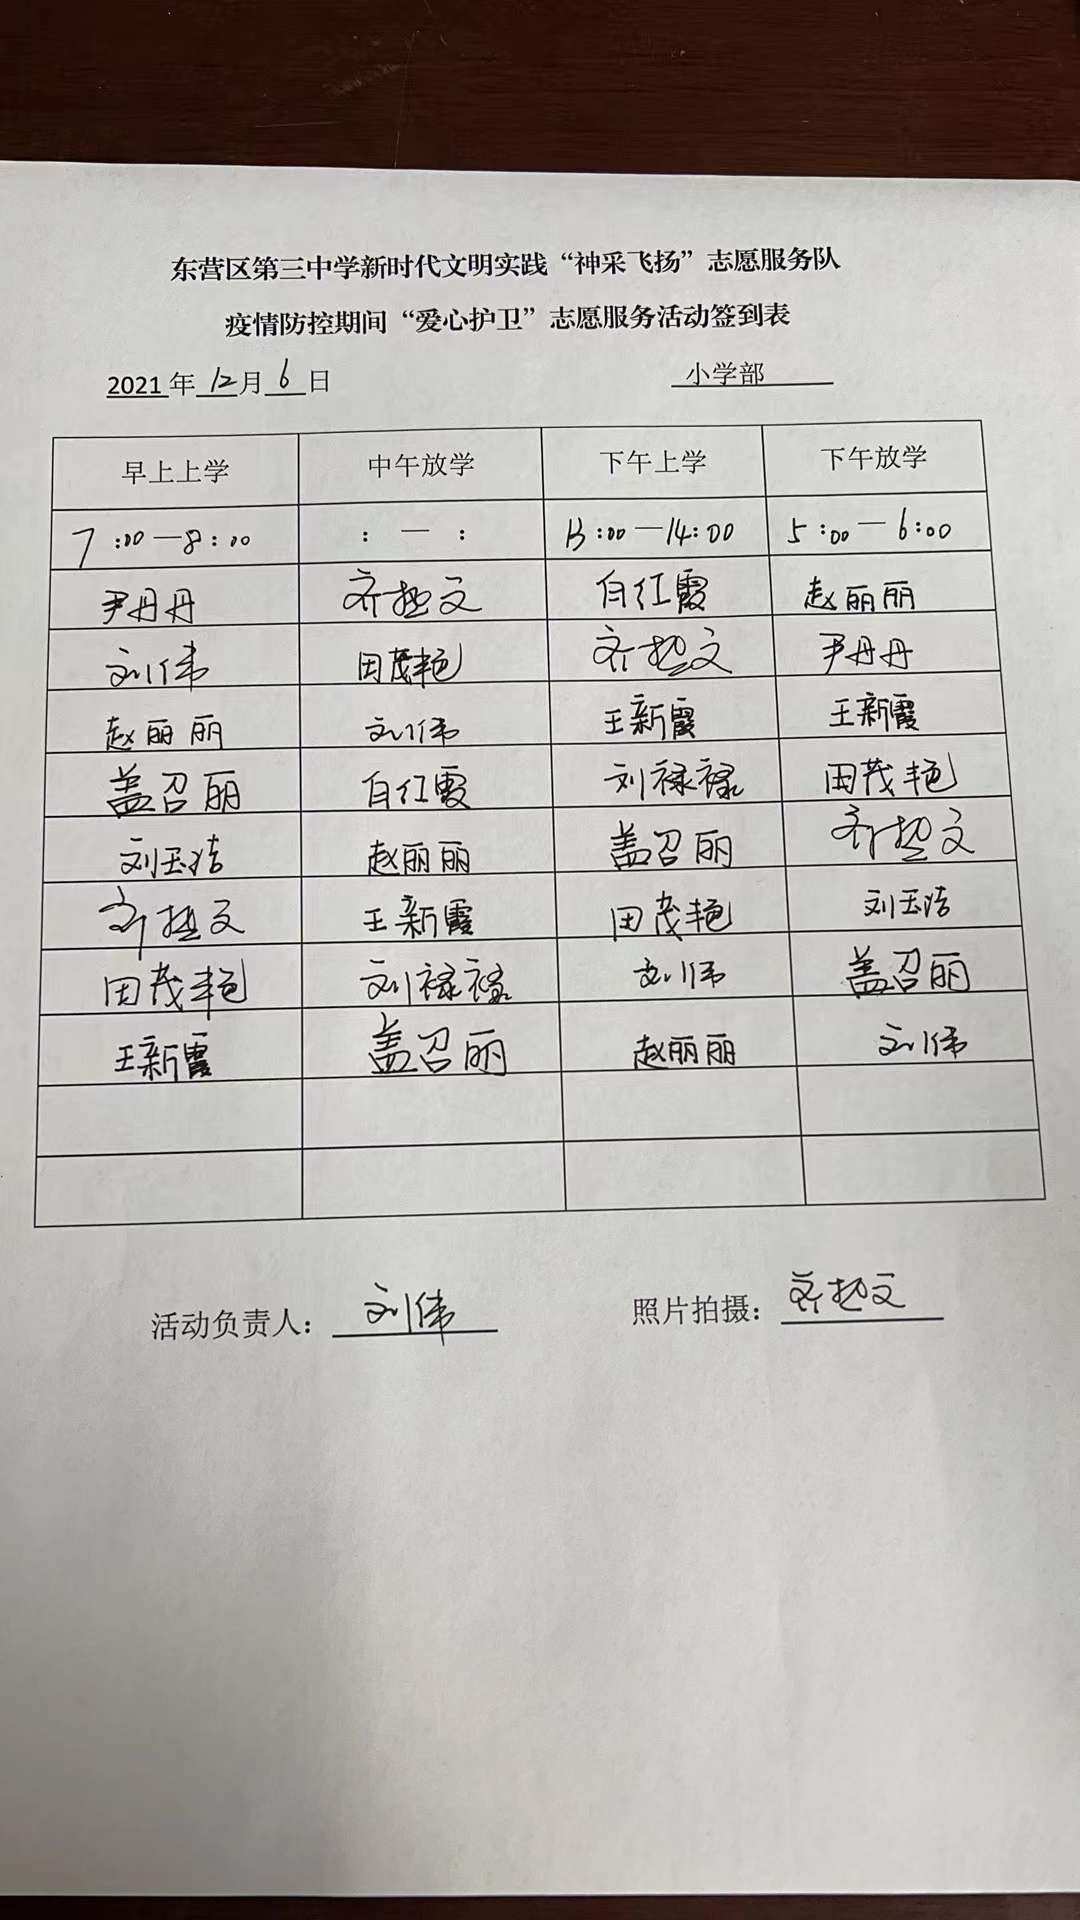 东营区第三中学新时代文明实践“神采飞扬”志愿服务队
疫情防控期间“爱心护卫”志愿服务活动签到表
2021年12月6日 小学部
早上上学 中午放学 下午上学 下午放学
7:00—8:00 : — : 13:00—14:00 5:00—6:00
尹丹丹 齐 文 白红霞 赵丽丽
刘伟 田茂艳 齐 文 尹丹丹
赵丽丽 刘伟 王新霞 王新霞
盖召丽 白红霞 刘禄禄 田茂艳
刘玉洁 赵丽丽 盖召丽 齐 文
齐 文 王新霞 田茂艳 刘玉洁
田茂艳 刘禄禄 刘伟 盖召丽
王新霞 盖召丽 赵丽丽 刘伟
活动负责人：刘伟 照片拍摄：齐 文